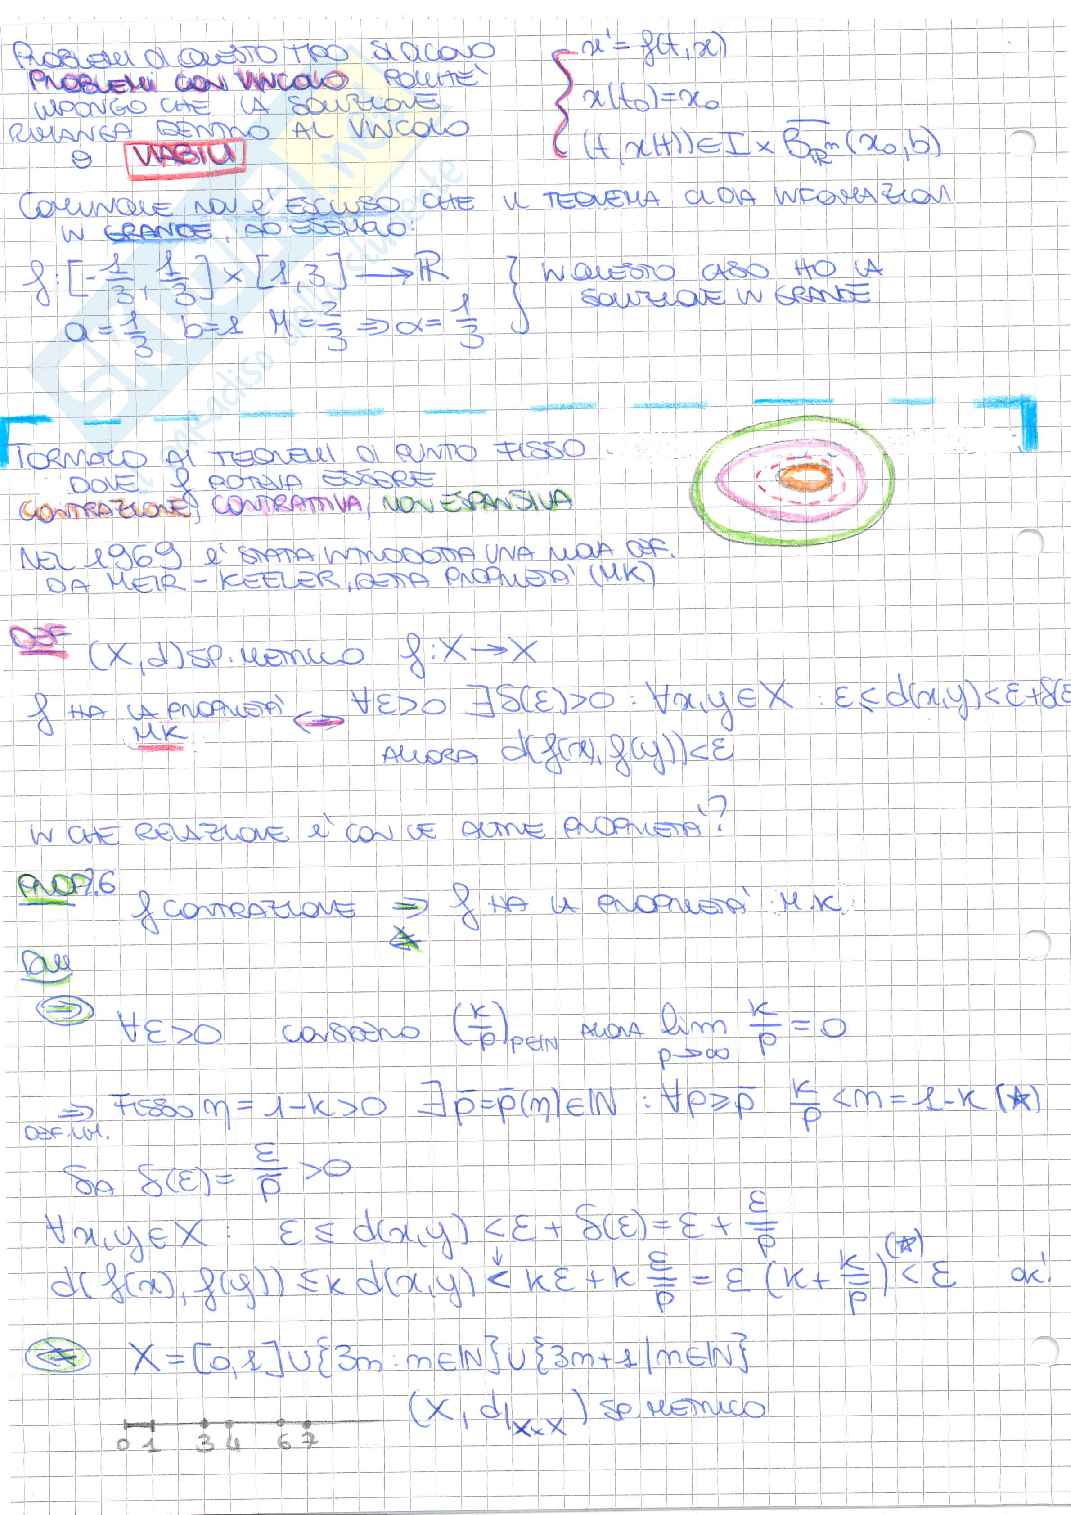 PROBLEMI DI QUESTO TIPO SI DICONO
PROBLEMI CON VINCOLO POICHÈ
IMPONGO CHE LA SOLUZIONE
RIMANGA DENTRO AL VINCOLO
O VIABILI
{ x' = f(t,x)
x(t₀)=x₀
(t,x(t)) ∈ I × B̅_ℝⁿ(x₀,b)
COMUNQUE NON È ESCLUSO CHE IL TEOREMA CI DIA INFORMAZIONI
IN GRANDE, AD ESEMPIO:
f: [-1/3, 1/3] × [1,3] → ℝ
a = 1/3 b=1 M = 2/3 ⇒ α = 1/3
} IN QUESTO CASO HO LA
SOLUZIONE IN GRANDE
TORNIAMO AI TEOREMI DI PUNTO FISSO
DOVE f POTEVA ESSERE
CONTRAZIONE, CONTRATTIVA, NON ESPANSIVA
NEL 1969 È STATA INTRODOTTA UNA NUOVA DEF.
DA MEIR-KEELER, DETTA PROPRIETÀ (MK)
DEF (X,d) SP. METRICO f: X → X
f HA LA PROPRIETÀ MK ⟺ ∀ε>0 ∃δ(ε)>0 : ∀x,y∈X : ε ≤ d(x,y) < ε+δ(ε
ALLORA d(f(x),f(y)) < ε
IN CHE RELAZIONE È CON LE ALTRE PROPRIETÀ?
PROP 7.6
f CONTRAZIONE ⇒ f HA LA PROPRIETÀ M.K.
DIM
⇒ ∀ε>0 CONSIDERO (k/p)_{p∈ℕ} ALLORA lim_{p→∞} k/p = 0
⇒ FISSO η = 1-k > 0 ∃p̄ = p̄(η) ∈ ℕ : ∀p ≥ p̄ k/p < η = 1-k (☆)
DEF. LIM.
SIA δ(ε) = ε/p̄ > 0
∀x,y∈X : ε ≤ d(x,y) < ε + δ(ε) = ε + ε/p̄
d(f(x),f(y)) ≤ k d(x,y) < kε + k ε/p̄ = ε (k + k/p̄) <^(☆) ε OK!
⇍ X = [0,1] ∪ {3m : m∈ℕ} ∪ {3m+1 | m∈ℕ}
(X, d|_{X×X}) SP. METRICO
0 1 3 4 6 7